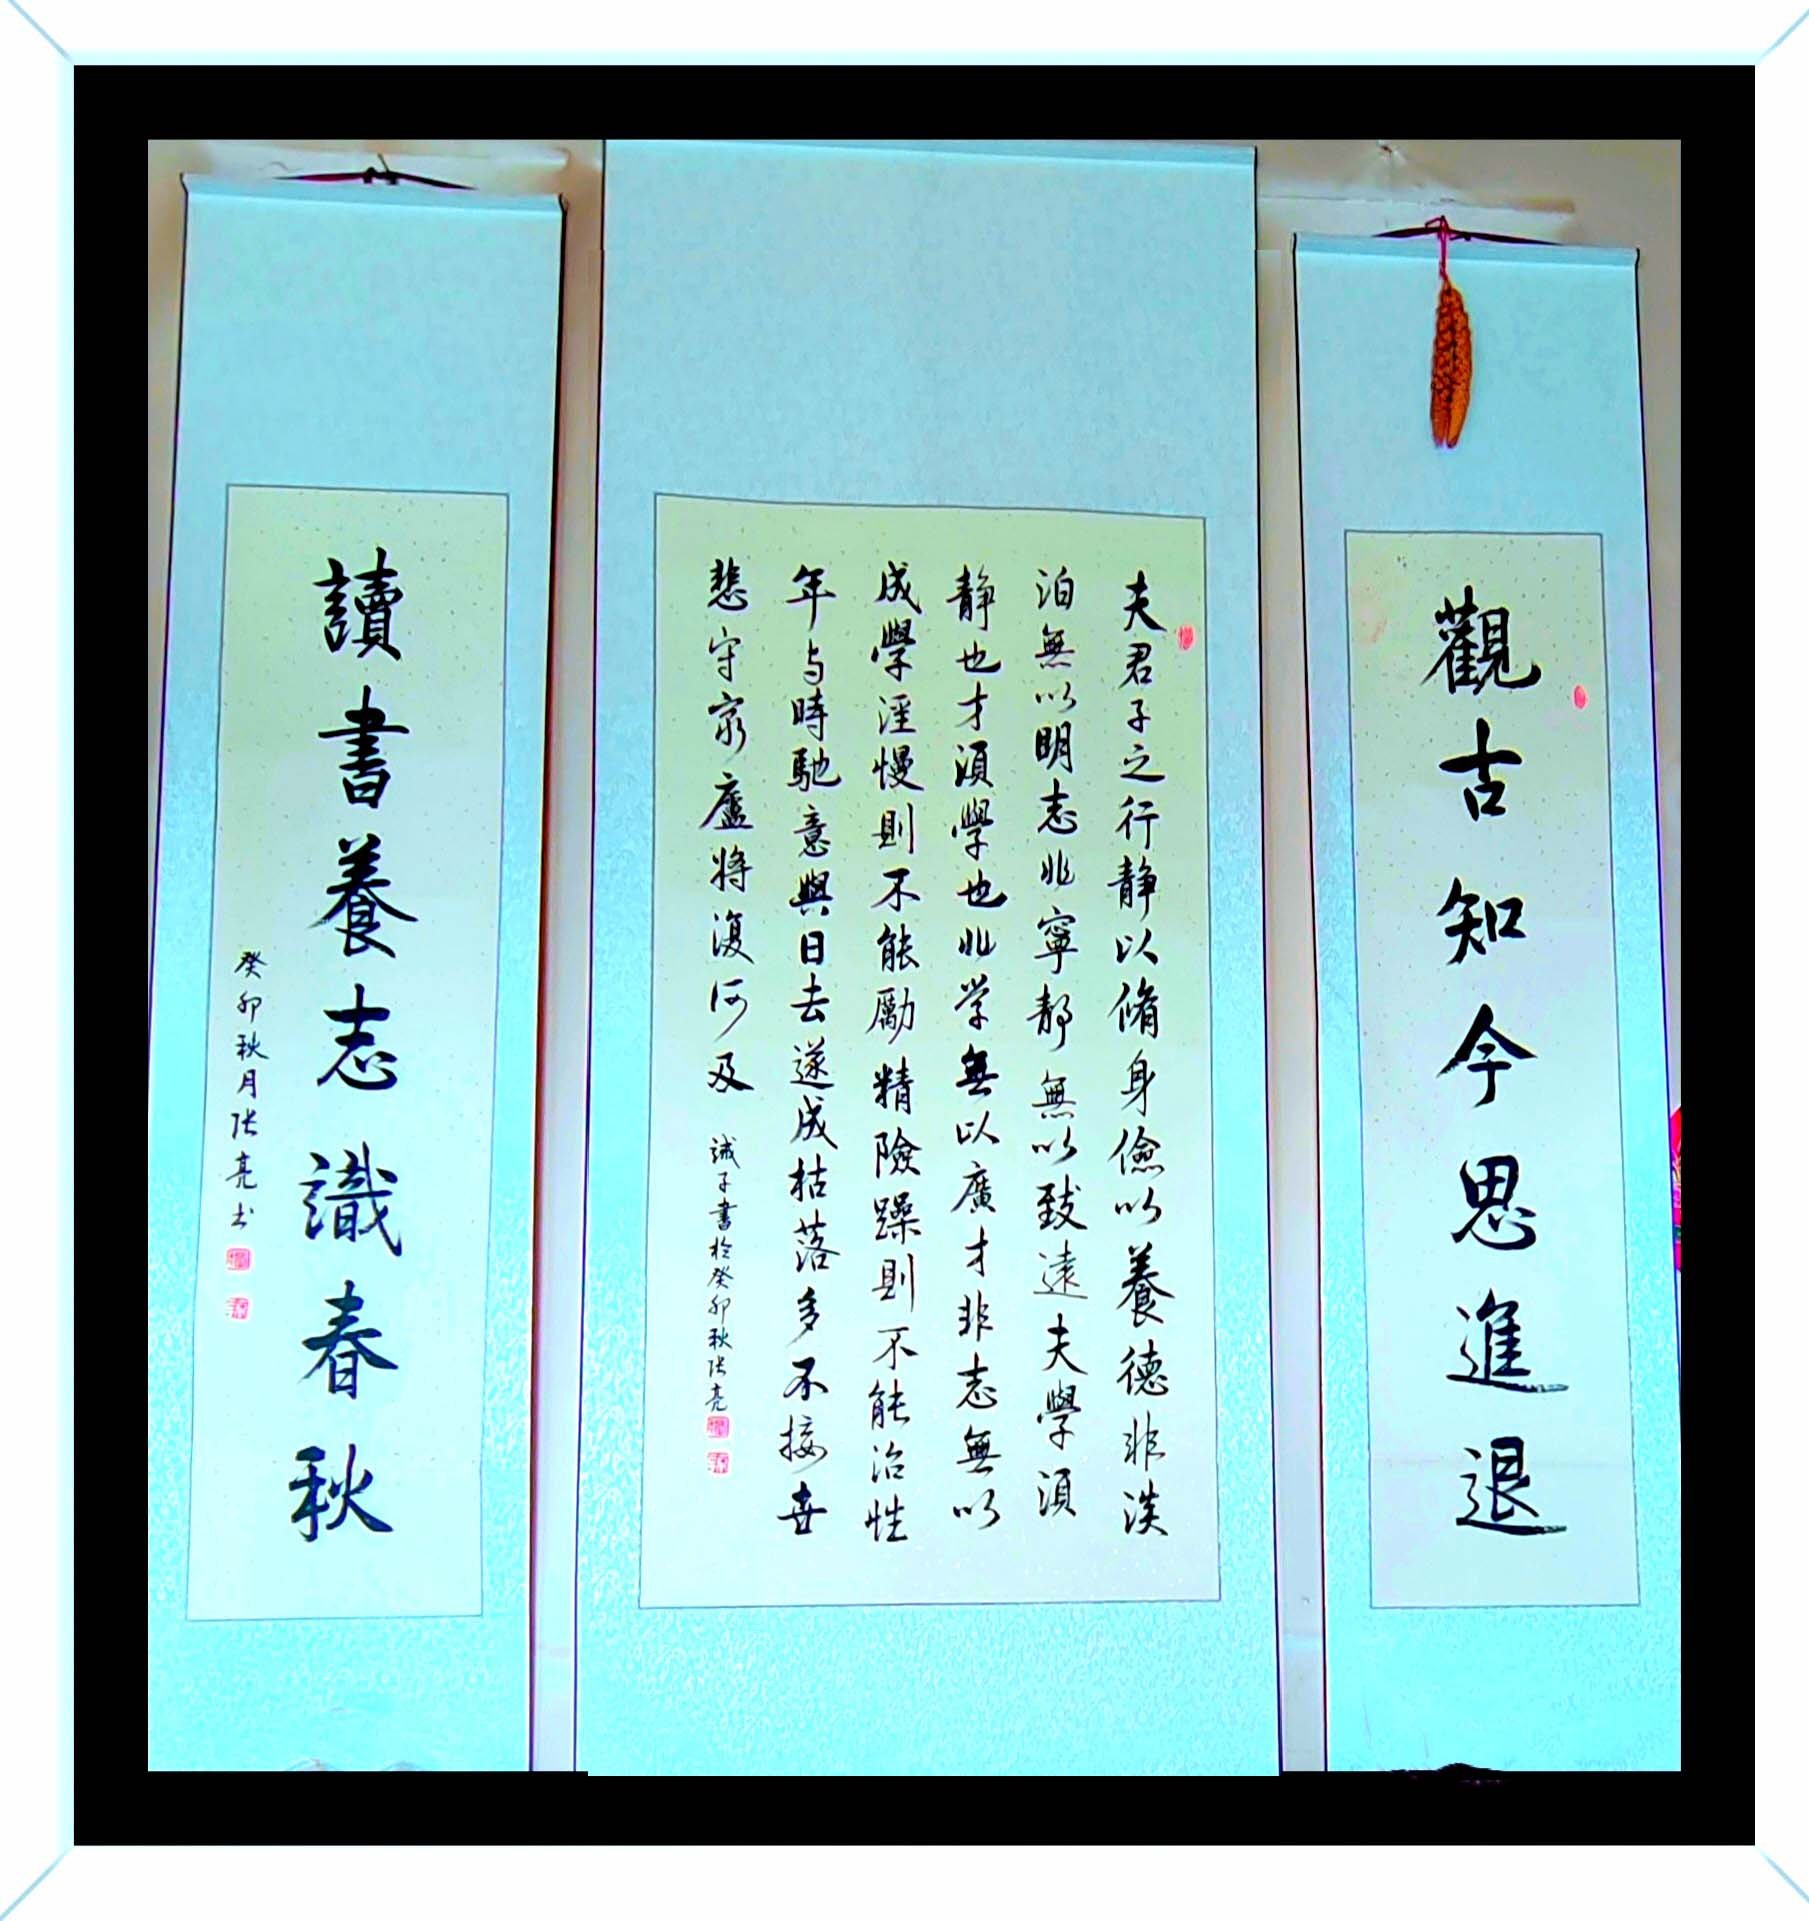 觀古知今思進退
夫君子之行静以脩身儉以養德非淡
泊無以明志非寧静無以致遠夫學須
静也才須學也非学無以廣才非志無以
成學淫慢則不能勵精險躁則不能治性
年与時馳意與日去遂成枯落多不接世
悲守窮廬將復何及
誡子書於癸卯秋张亮
讀書養志識春秋
癸卯秋月张亮书